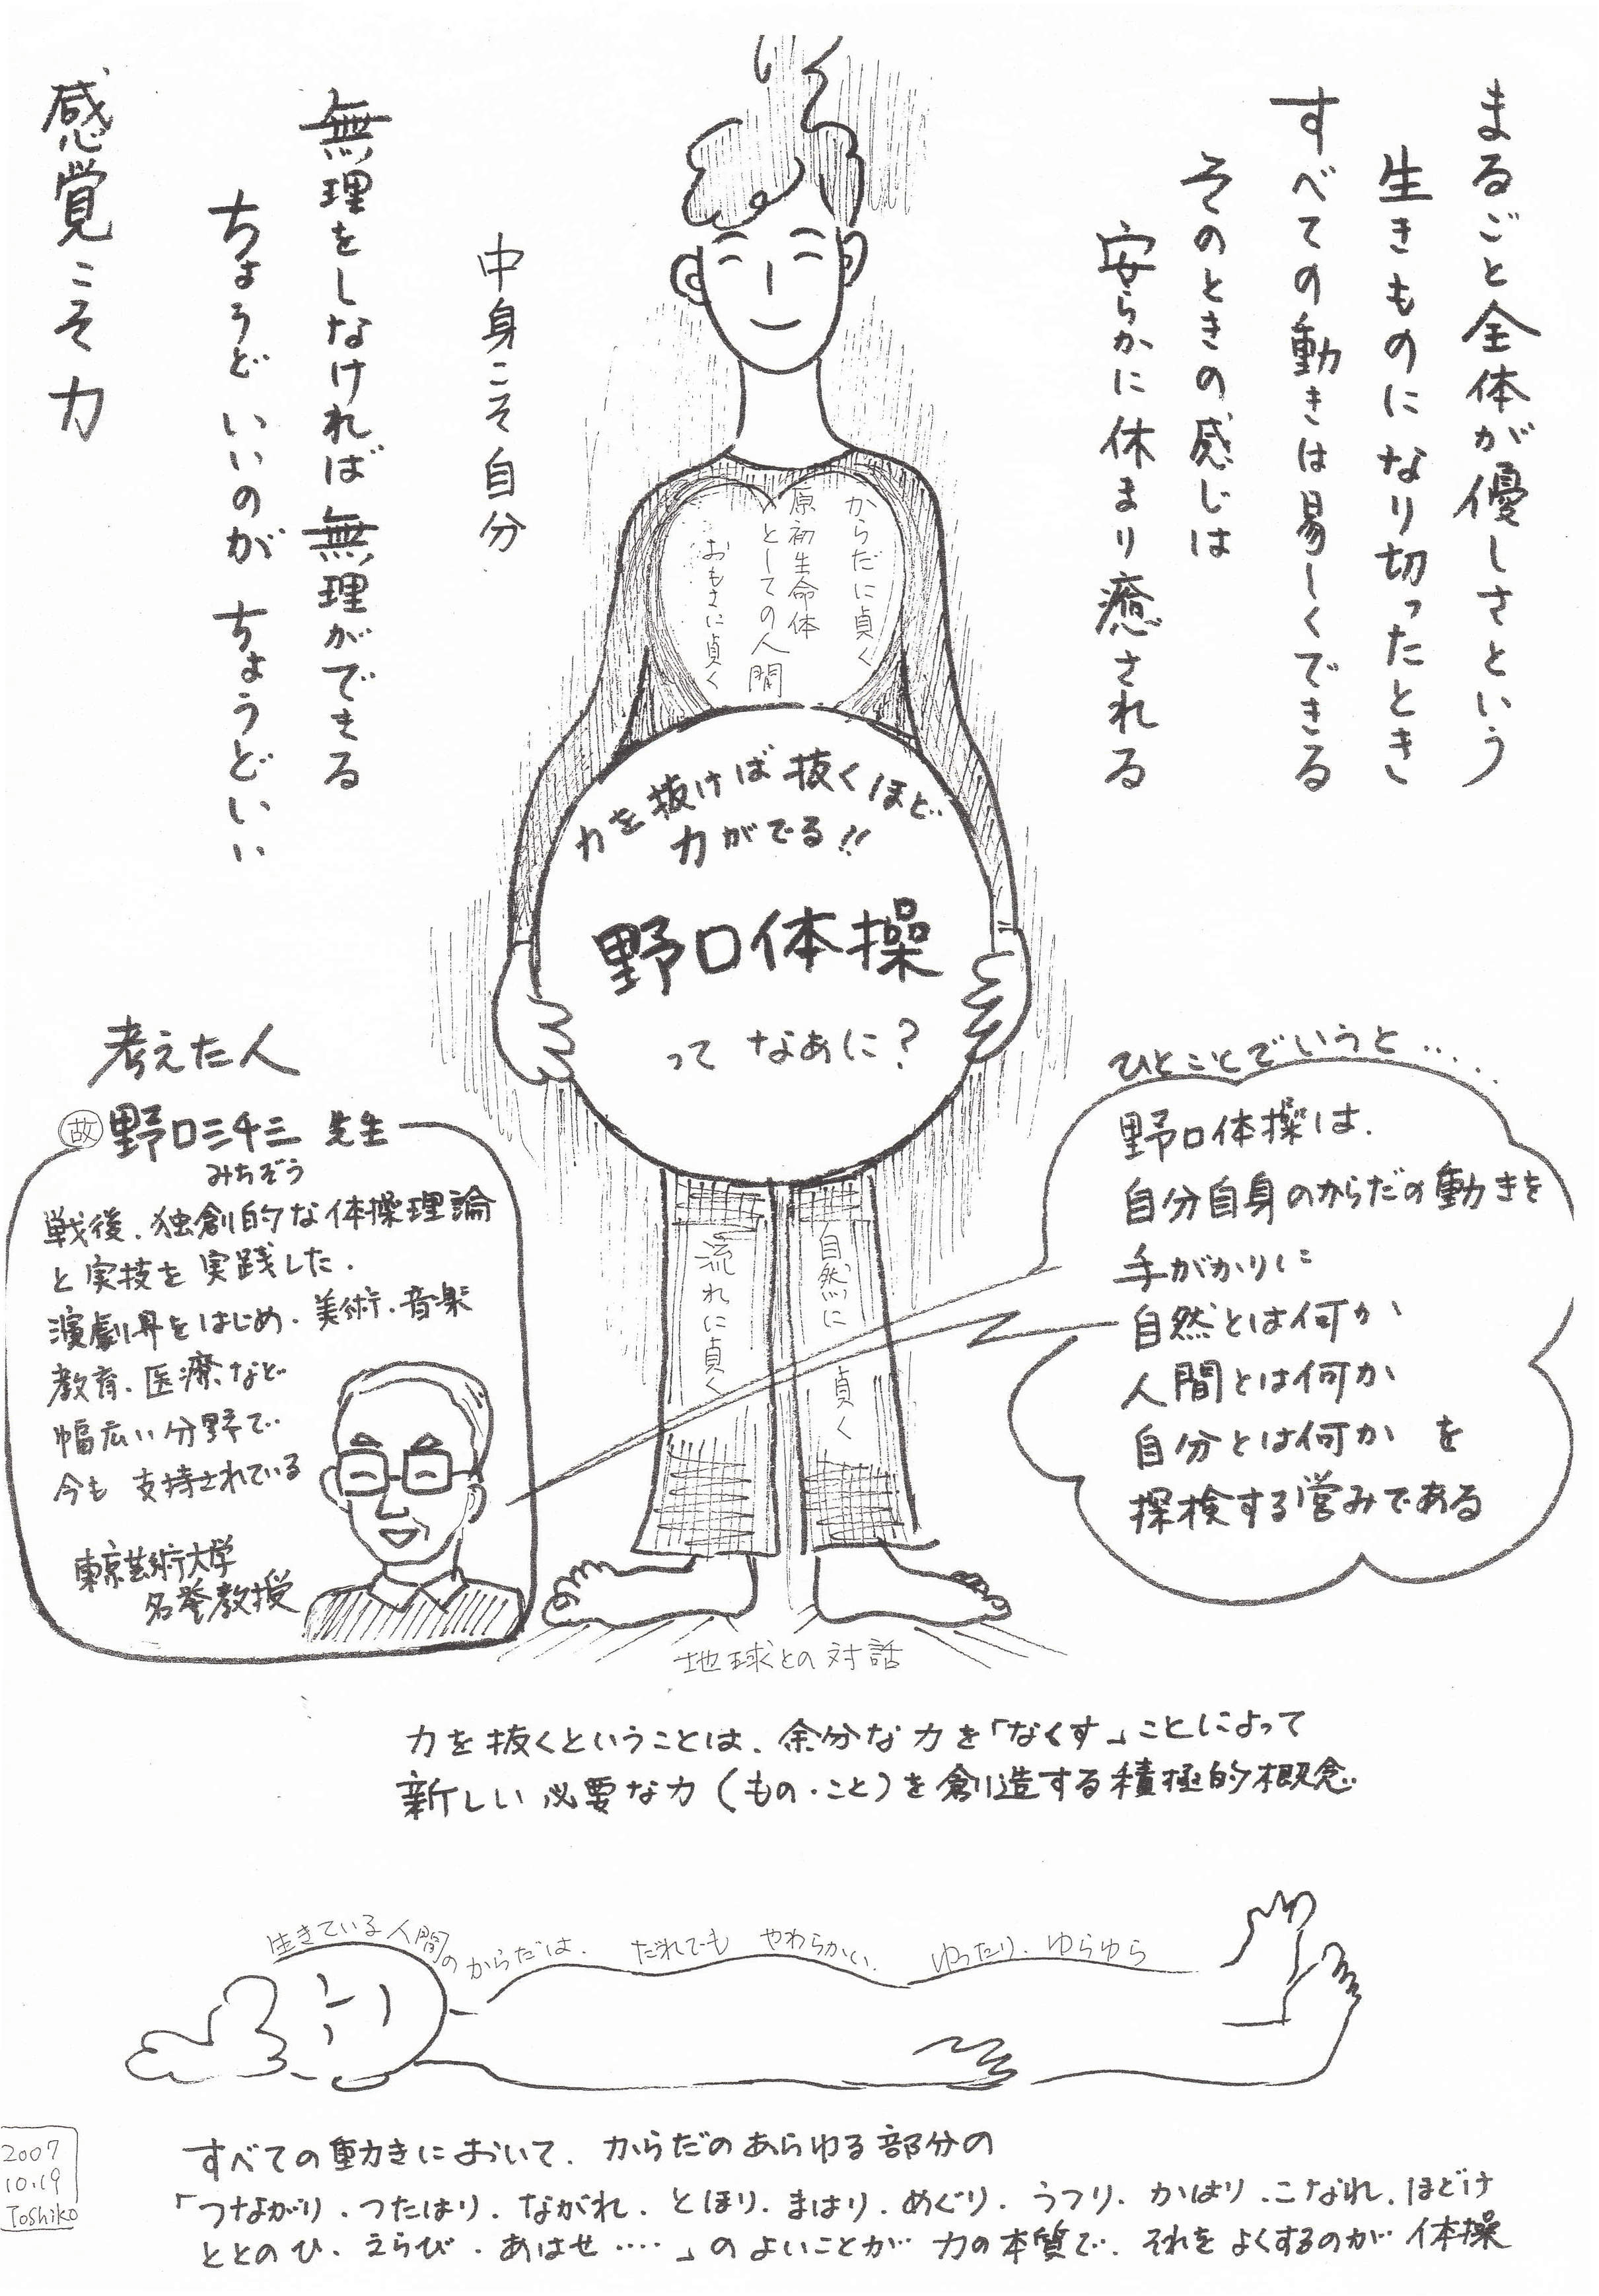 まるごと全体が優しさという
生きものになり切ったとき
すべての動きは易しくできる
そのときの感じは
安らかに休まり癒される
中身こそ自分
無理をしなければ無理ができる
ちょうどいいのが ちょうどいい
感覚こそ力
からだに貞く
原初生命体
としての人間
おもさに貞く
力を抜けば抜くほど
力がでる!!
野口体操
って なあに?
自然に貞く
流れに貞く
地球との対話
考えた人
故 野口三千三 先生
みちぞう
戦後、独創的な体操理論
と実技を実践した.
演劇界をはじめ、美術、音楽
教育、医療など
幅広い分野で
今も 支持されている
東京芸術大学
名誉教授
ひとことでいうと...
野口体操は、
自分自身のからだの動きを
手がかりに
自然とは何か
人間とは何か
自分とは何か を
探検する営みである
力を抜くということは、余分な力を「なくす」ことによって
新しい必要な力(もの・こと)を創造する積極的概念
生きている人間のからだは、だれでも やわらかい、ゆったり、ゆらゆら
すべての動きにおいて、からだのあらゆる部分の
「つながり、つたはり、ながれ、とほり、まはり、めぐり、うつり、かはり、こなれ、ほどけ
ととのひ、えらび、あはせ・・・・」のよいことが 力の本質で、それをよくするのが 体操
2007
10.19
Toshiko